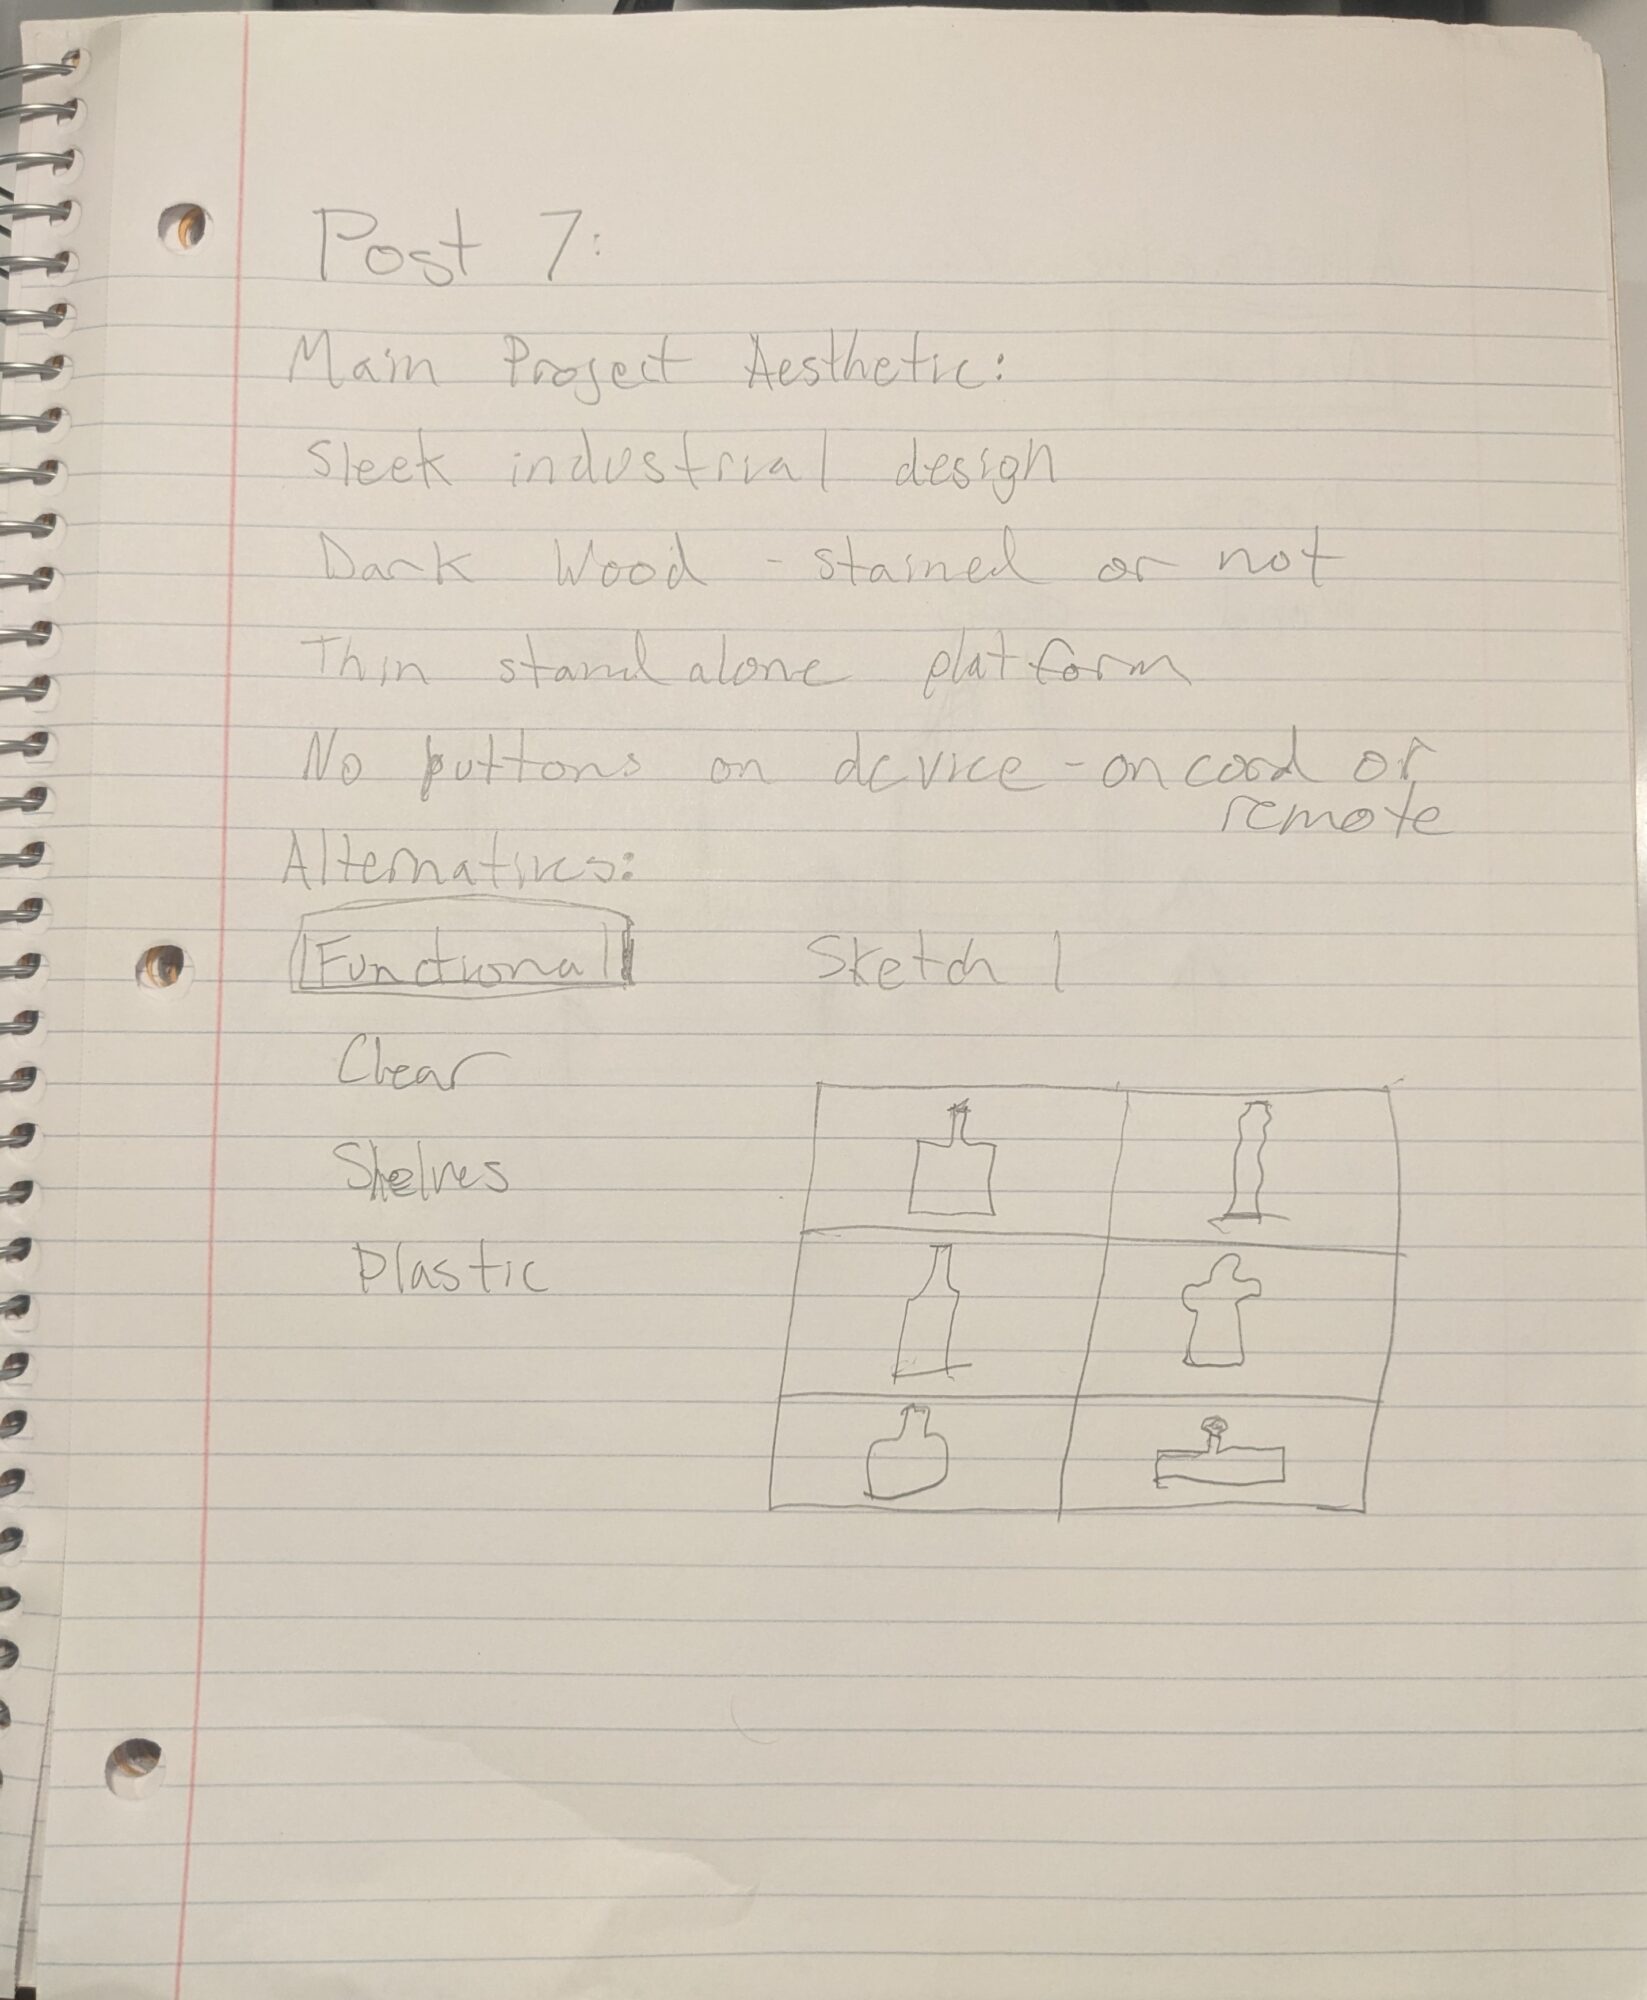 Post 7:
Main Project Aesthetic:
Sleek industrial design
Dark Wood - stained or not
Thin stand alone platform
No buttons on device - on cord or
remote
Alternatives:
Functional
Sketch 1
Clear
Shelves
Plastic